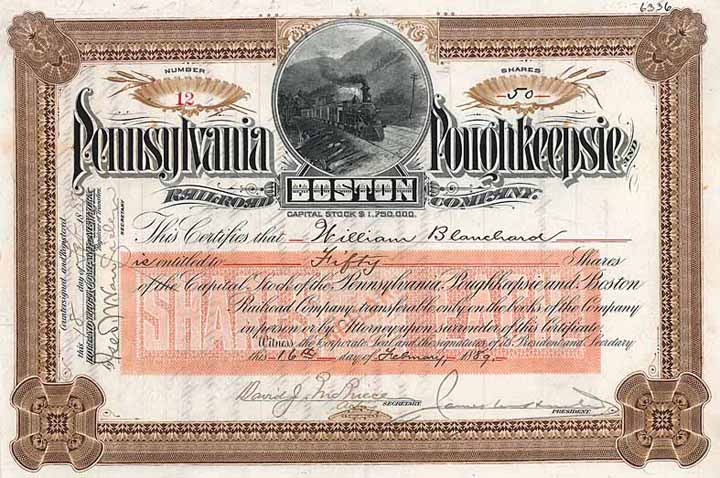 6336
NUMBER
12
SHARES
50
Pennsylvania Poughkeepsie AND
RAILROAD BOSTON COMPANY.
CAPITAL STOCK $1,750,000.
This Certifies that William Blanchard
is entitled to Fifty Shares
of the Capital Stock of the Pennsylvania, Poughkeepsie and Boston
Railroad Company, transferable only on the books of the Company
in person or by Attorney upon surrender of this Certificate.
Witness the Corporate Seal and the signatures of its President and Secretary
this 16th day of February 1889.
David J.
SECRETARY
PRESIDENT
Countersigned and Registered
this day of 18
SECRETARY
SHARES